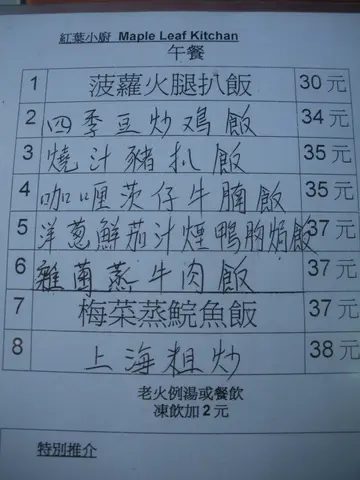 紅葉小廚 Maple Leaf Kitchan
午餐
1 菠蘿火腿扒飯 30元
2 四季豆炒鴻飯 34元
3 燒汁豬扒飯 35元
4 咖喱茨仔牛腩飯 35元
5 洋蔥鮮茄汁煙鴨胸焗飯 37元
6 雜菌蒸牛肉飯 37元
7 梅菜蒸鯇魚飯 37元
8 上海粗炒 38元
老火例湯或餐飲
凍飲加2元
特別推介